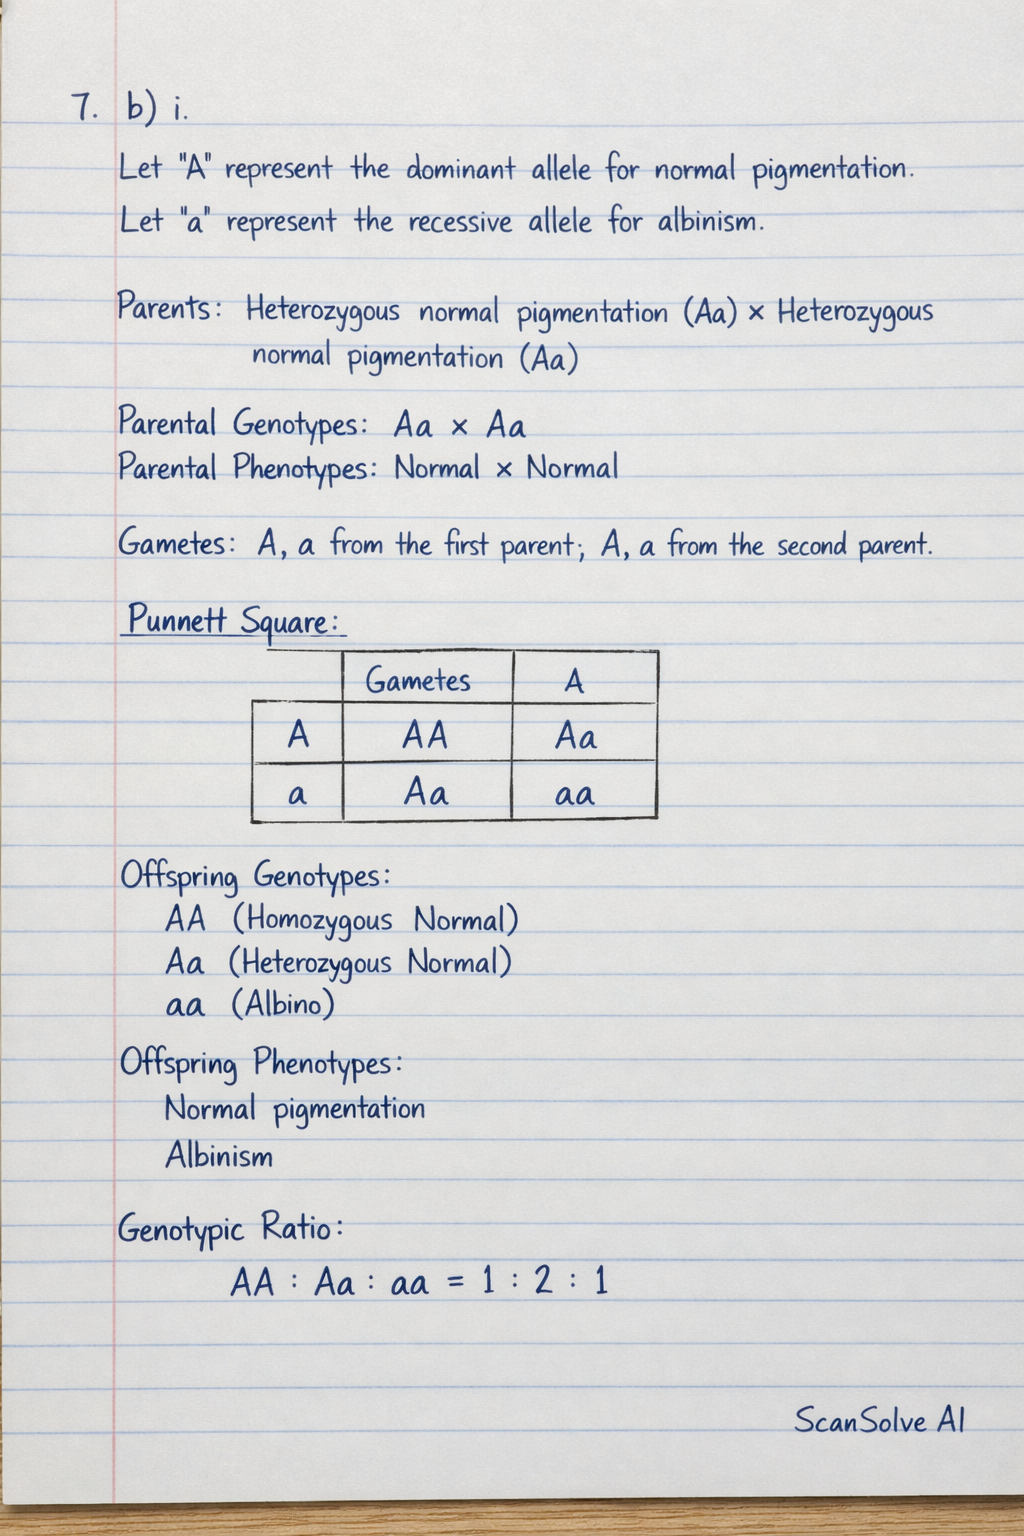 7. b) i.
Let "A" represent the dominant allele for normal pigmentation.
Let "a" represent the recessive allele for albinism.
Parents: Heterozygous normal pigmentation (Aa) × Heterozygous
normal pigmentation (Aa)
Parental Genotypes: Aa × Aa
Parental Phenotypes: Normal × Normal
Gametes: A, a from the first parent; A, a from the second parent.
Punnett Square:
Gametes A
A AA Aa
a Aa aa
Offspring Genotypes:
AA (Homozygous Normal)
Aa (Heterozygous Normal)
aa (Albino)
Offspring Phenotypes:
Normal pigmentation
Albinism
Genotypic Ratio:
AA : Aa : aa = 1 : 2 : 1
ScanSolve AI